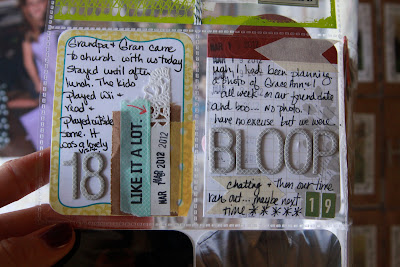 Grandpa + Gran came
to church with us today
Stayed until after
lunch. The kids
played Wii +
read +
played outside
some. It
was a lovely
visit
18
LIKE IT A LOT.
MAR 2012
MAR
ugh! I had been planning
a photo of Grace Ann + I
all week - on our friend date
and boo... no photo. I
have no excuse but we were
BLOOP
chatting + then our time
ran out... maybe next
time ****
19